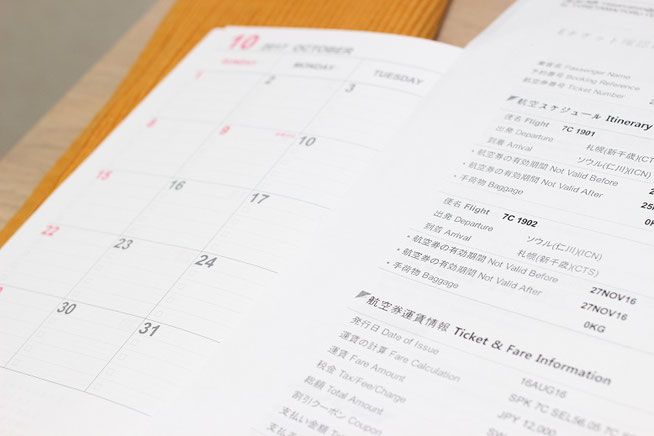 10 2017 OCTOBER
SUNDAY MONDAY TUESDAY
1 2 3
8 9 10
15 16 17
22 23 24
30 31
乗客名 Passenger Name
予約番号 Booking Reference
航空券番号 Ticket Number
航空スケジュール Itinerary
便名 Flight 7C 1901
出発 Departure 札幌(新千歳)(CTS)
到着 Arrival ソウル(仁川)(ICN)
・航空券の有効期間 Not Valid Before
・航空券の有効期間 Not Valid After
・手荷物 Baggage
便名 Flight 7C 1902
出発 Departure ソウル(仁川)(ICN)
到着 Arrival 札幌(新千歳)(CTS)
・航空券の有効期間 Not Valid Before 27NOV16
・航空券の有効期間 Not Valid After 27NOV16
・手荷物 Baggage 0KG
航空券運賃情報 Ticket & Fare Information
発行日 Date of Issue 16AUG16
運賃の計算 Fare Calculation SPK 7C SEL56.05 7C
運賃 Fare Amount JPY 12,000
税金 Tax/Fee/Charge
総額 Total Amount
割引クーポン Coupon
支払い金額